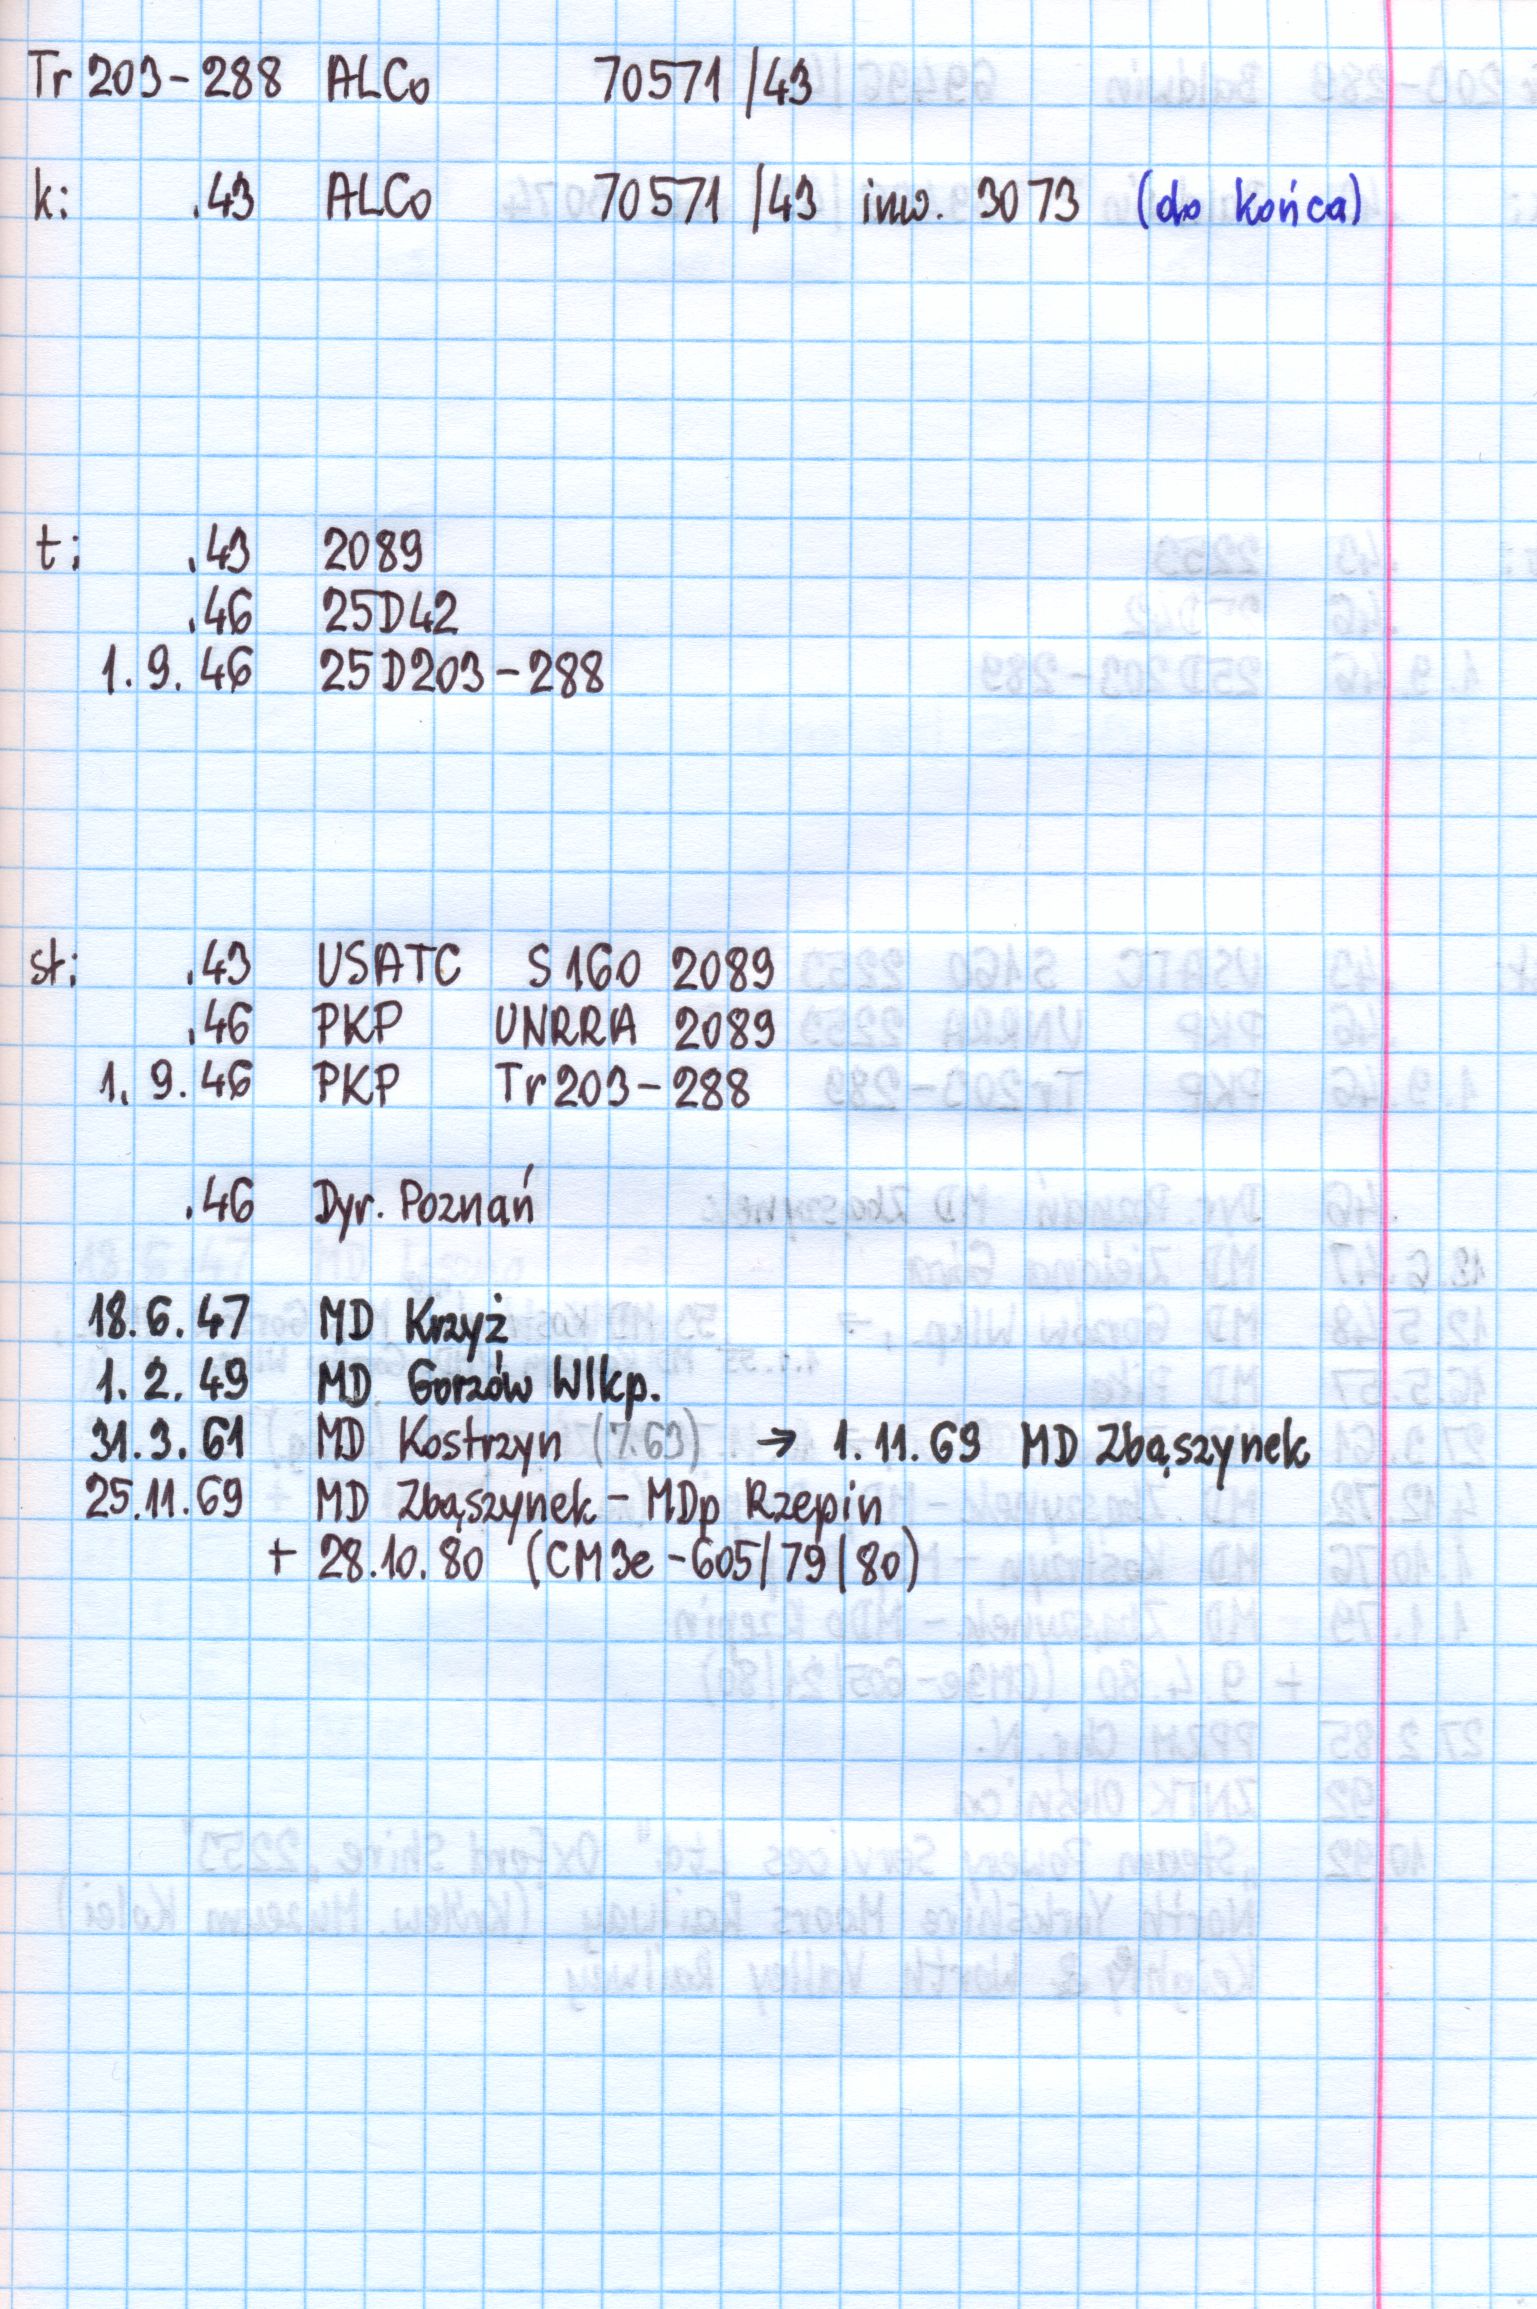 Tr 203-288 ALCo 70571/43
k: .43 ALCo 70571/43 inw. 3073 (do końca)
t: .43 2089
.46 25D42
1.9.46 25D203-288
st: .43 USATC S160 2089
.46 PKP UNRRA 2089
1.9.46 PKP Tr203-288
.46 Dyr. Poznań
18.6.47 MD Krzyż
1.2.49 MD Gorzów Wlkp.
31.3.61 MD Kostrzyn (7.63) → 1.11.69 MD Zbąszynek
25.11.69 MD Zbąszynek - MDp Rzepin
+ 28.10.80 (CM3e-605/79/80)